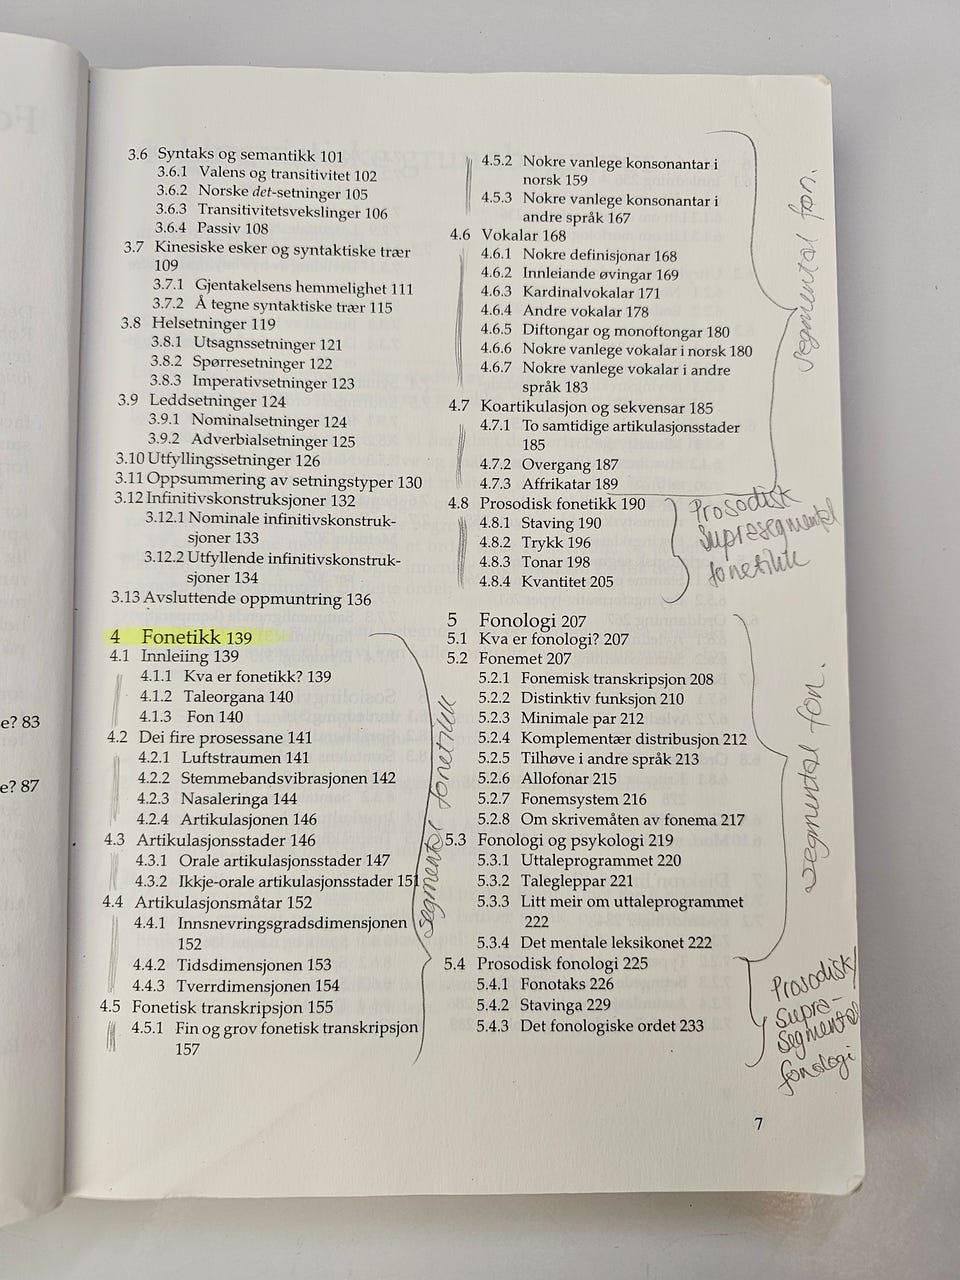 3.6 Syntaks og semantikk 101
3.6.1 Valens og transitivitet 102
3.6.2 Norske det-setninger 105
3.6.3 Transitivitetsvekslinger 106
3.6.4 Passiv 108
3.7 Kinesiske esker og syntaktiske trær
109
3.7.1 Gjentakelsens hemmelighet 111
3.7.2 Å tegne syntaktiske trær 115
3.8 Helsetninger 119
3.8.1 Utsagnssetninger 121
3.8.2 Spørresetninger 122
3.8.3 Imperativsetninger 123
3.9 Leddsetninger 124
3.9.1 Nominalsetninger 124
3.9.2 Adverbialsetninger 125
3.10 Utfyllingssetninger 126
3.11 Oppsummering av setningstyper 130
3.12 Infinitivskonstruksjoner 132
3.12.1 Nominale infinitivskonstruk-
sjoner 133
3.12.2 Utfyllende infinitivskonstruk-
sjoner 134
3.13 Avsluttende oppmuntring 136
4 Fonetikk 139
4.1 Innleiing 139
4.1.1 Kva er fonetikk? 139
4.1.2 Taleorgana 140
4.1.3 Fon 140
4.2 Dei fire prosessane 141
4.2.1 Luftstraumen 141
4.2.2 Stemmebandsvibrasjonen 142
4.2.3 Nasaleringa 144
4.2.4 Artikulasjonen 146
4.3 Artikulasjonsstader 146
4.3.1 Orale artikulasjonsstader 147
4.3.2 Ikkje-orale artikulasjonsstader 151
4.4 Artikulasjonsmåtar 152
4.4.1 Innsnevringsgradsdimensjonen
152
4.4.2 Tidsdimensjonen 153
4.4.3 Tverrdimensjonen 154
4.5 Fonetisk transkripsjon 155
4.5.1 Fin og grov fonetisk transkripsjon
157
segmental fonetikk
4.5.2 Nokre vanlege konsonantar i
norsk 159
4.5.3 Nokre vanlege konsonantar i
andre språk 167
4.6 Vokalar 168
4.6.1 Nokre definisjonar 168
4.6.2 Innleiande øvingar 169
4.6.3 Kardinalvokalar 171
4.6.4 Andre vokalar 178
4.6.5 Diftongar og monoftongar 180
4.6.6 Nokre vanlege vokalar i norsk 180
4.6.7 Nokre vanlege vokalar i andre
språk 183
4.7 Koartikulasjon og sekvensar 185
4.7.1 To samtidige artikulasjonsstader
185
4.7.2 Overgang 187
4.7.3 Affrikatar 189
segmental fon.
4.8 Prosodisk fonetikk 190
4.8.1 Staving 190
4.8.2 Trykk 196
4.8.3 Tonar 198
4.8.4 Kvantitet 205
Prosodisk
Supresegmental
fonetikk
5 Fonologi 207
5.1 Kva er fonologi? 207
5.2 Fonemet 207
5.2.1 Fonemisk transkripsjon 208
5.2.2 Distinktiv funksjon 210
5.2.3 Minimale par 212
5.2.4 Komplementær distribusjon 212
5.2.5 Tilhøve i andre språk 213
5.2.6 Allofonar 215
5.2.7 Fonemsystem 216
5.2.8 Om skrivemåten av fonema 217
5.3 Fonologi og psykologi 219
5.3.1 Uttaleprogrammet 220
5.3.2 Talegleppar 221
5.3.3 Litt meir om uttaleprogrammet
222
5.3.4 Det mentale leksikonet 222
segmental fon.
5.4 Prosodisk fonologi 225
5.4.1 Fonotaks 226
5.4.2 Stavinga 229
5.4.3 Det fonologiske ordet 233
Prosodisk/
Supra-
segmental
fonologi
7
e? 83
e? 87